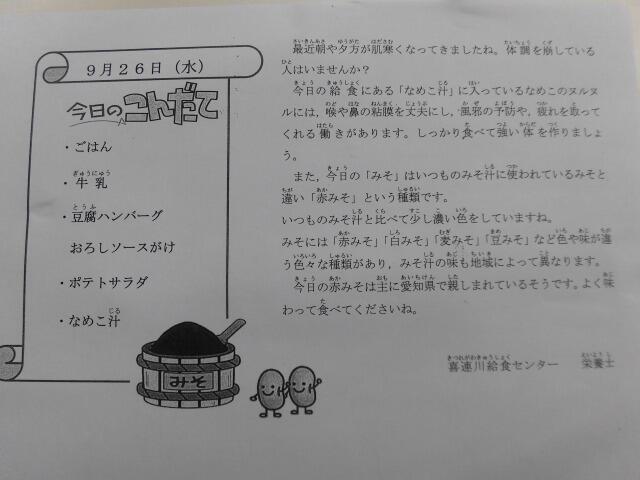 9月26日（水）
今日のこんだて
・ごはん
・牛乳
・豆腐ハンバーグ
おろしソースがけ
・ポテトサラダ
・なめこ汁
みそ
最近朝や夕方が肌寒くなってきましたね。体調を崩している
人はいませんか？
今日の給食にある「なめこ汁」に入っているなめこのヌルヌ
ルには，喉や鼻の粘膜を丈夫にし，風邪の予防や，疲れを取って
くれる働きがあります。しっかり食べて強い体を作りましょ
う。
また，今日の「みそ」はいつものみそ汁に使われているみそと
違い「赤みそ」という種類です。
いつものみそ汁と比べて少し濃い色をしていますね。
みそには「赤みそ」「白みそ」「麦みそ」「豆みそ」など色や味が違
う色々な種類があり，みそ汁の味も地域によって異なります。
今日の赤みそは主に愛知県で親しまれているそうです。よく味
わって食べてくださいね。
喜連川給食センター　栄養士